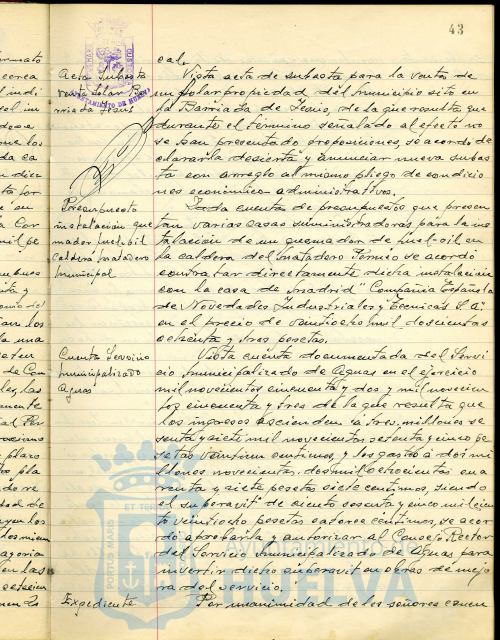 43
cal.
Acta Subasta
Vista acta de subasta para la venta de
un solar propiedad del municipio sito en
AYUNTAMIENTO DE HUELVA
la Barriada de Jesus, de la que resulta que
durante el término señalado al efecto no
se han presentado proposiciones, se acordó de
clararla desierta y anunciar nueva subas
ta con arreglo al mismo pliego de condicio
nes económico administrativas.
Presupuesto
instalación que
mador fuel-oil
caldera matadero
municipal
Dada cuenta de presupuestos que presen
tan varias casas suministradoras para la ins
talación de un quemador de fuel-oil en
la caldera del matadero Término se acordó
contratar directamente dicha instalación
con la casa de Madrid "Compañia Española
de Novedades Industriales y Tecnicas S.A."
en el precio de veintiocho mil doscientas
ochenta y tres pesetas.
Cuenta Servicio
municipalizado
Aguas
Vista cuenta documentada del Servi
cio municipalizado de Aguas en el ejercicio
mil novecientos cincuenta y dos y mil novecien
tos cincuenta y tres de la que resulta que
los ingresos ascienden a tres millones se
senta y siete mil novecientas setenta y cinco pe
setas veintiun centimos, y los gastos a dos mi
llones novecientas dos mil ochocientas cua
renta y siete pesetas siete centimos, siendo
el superavit de ciento sesenta y cinco mil cien
to veintiocho pesetas catorce centimos, se acor
dó aprobarla y autorizar al Consejo Rector
del Servicio municipalizado de Aguas para
invertir dicho superavit en obras de mejo
ra del servicio.
Expediente
Por unanimidad de los señores concu
PORTUS MARIS
ET TER
HUELVA